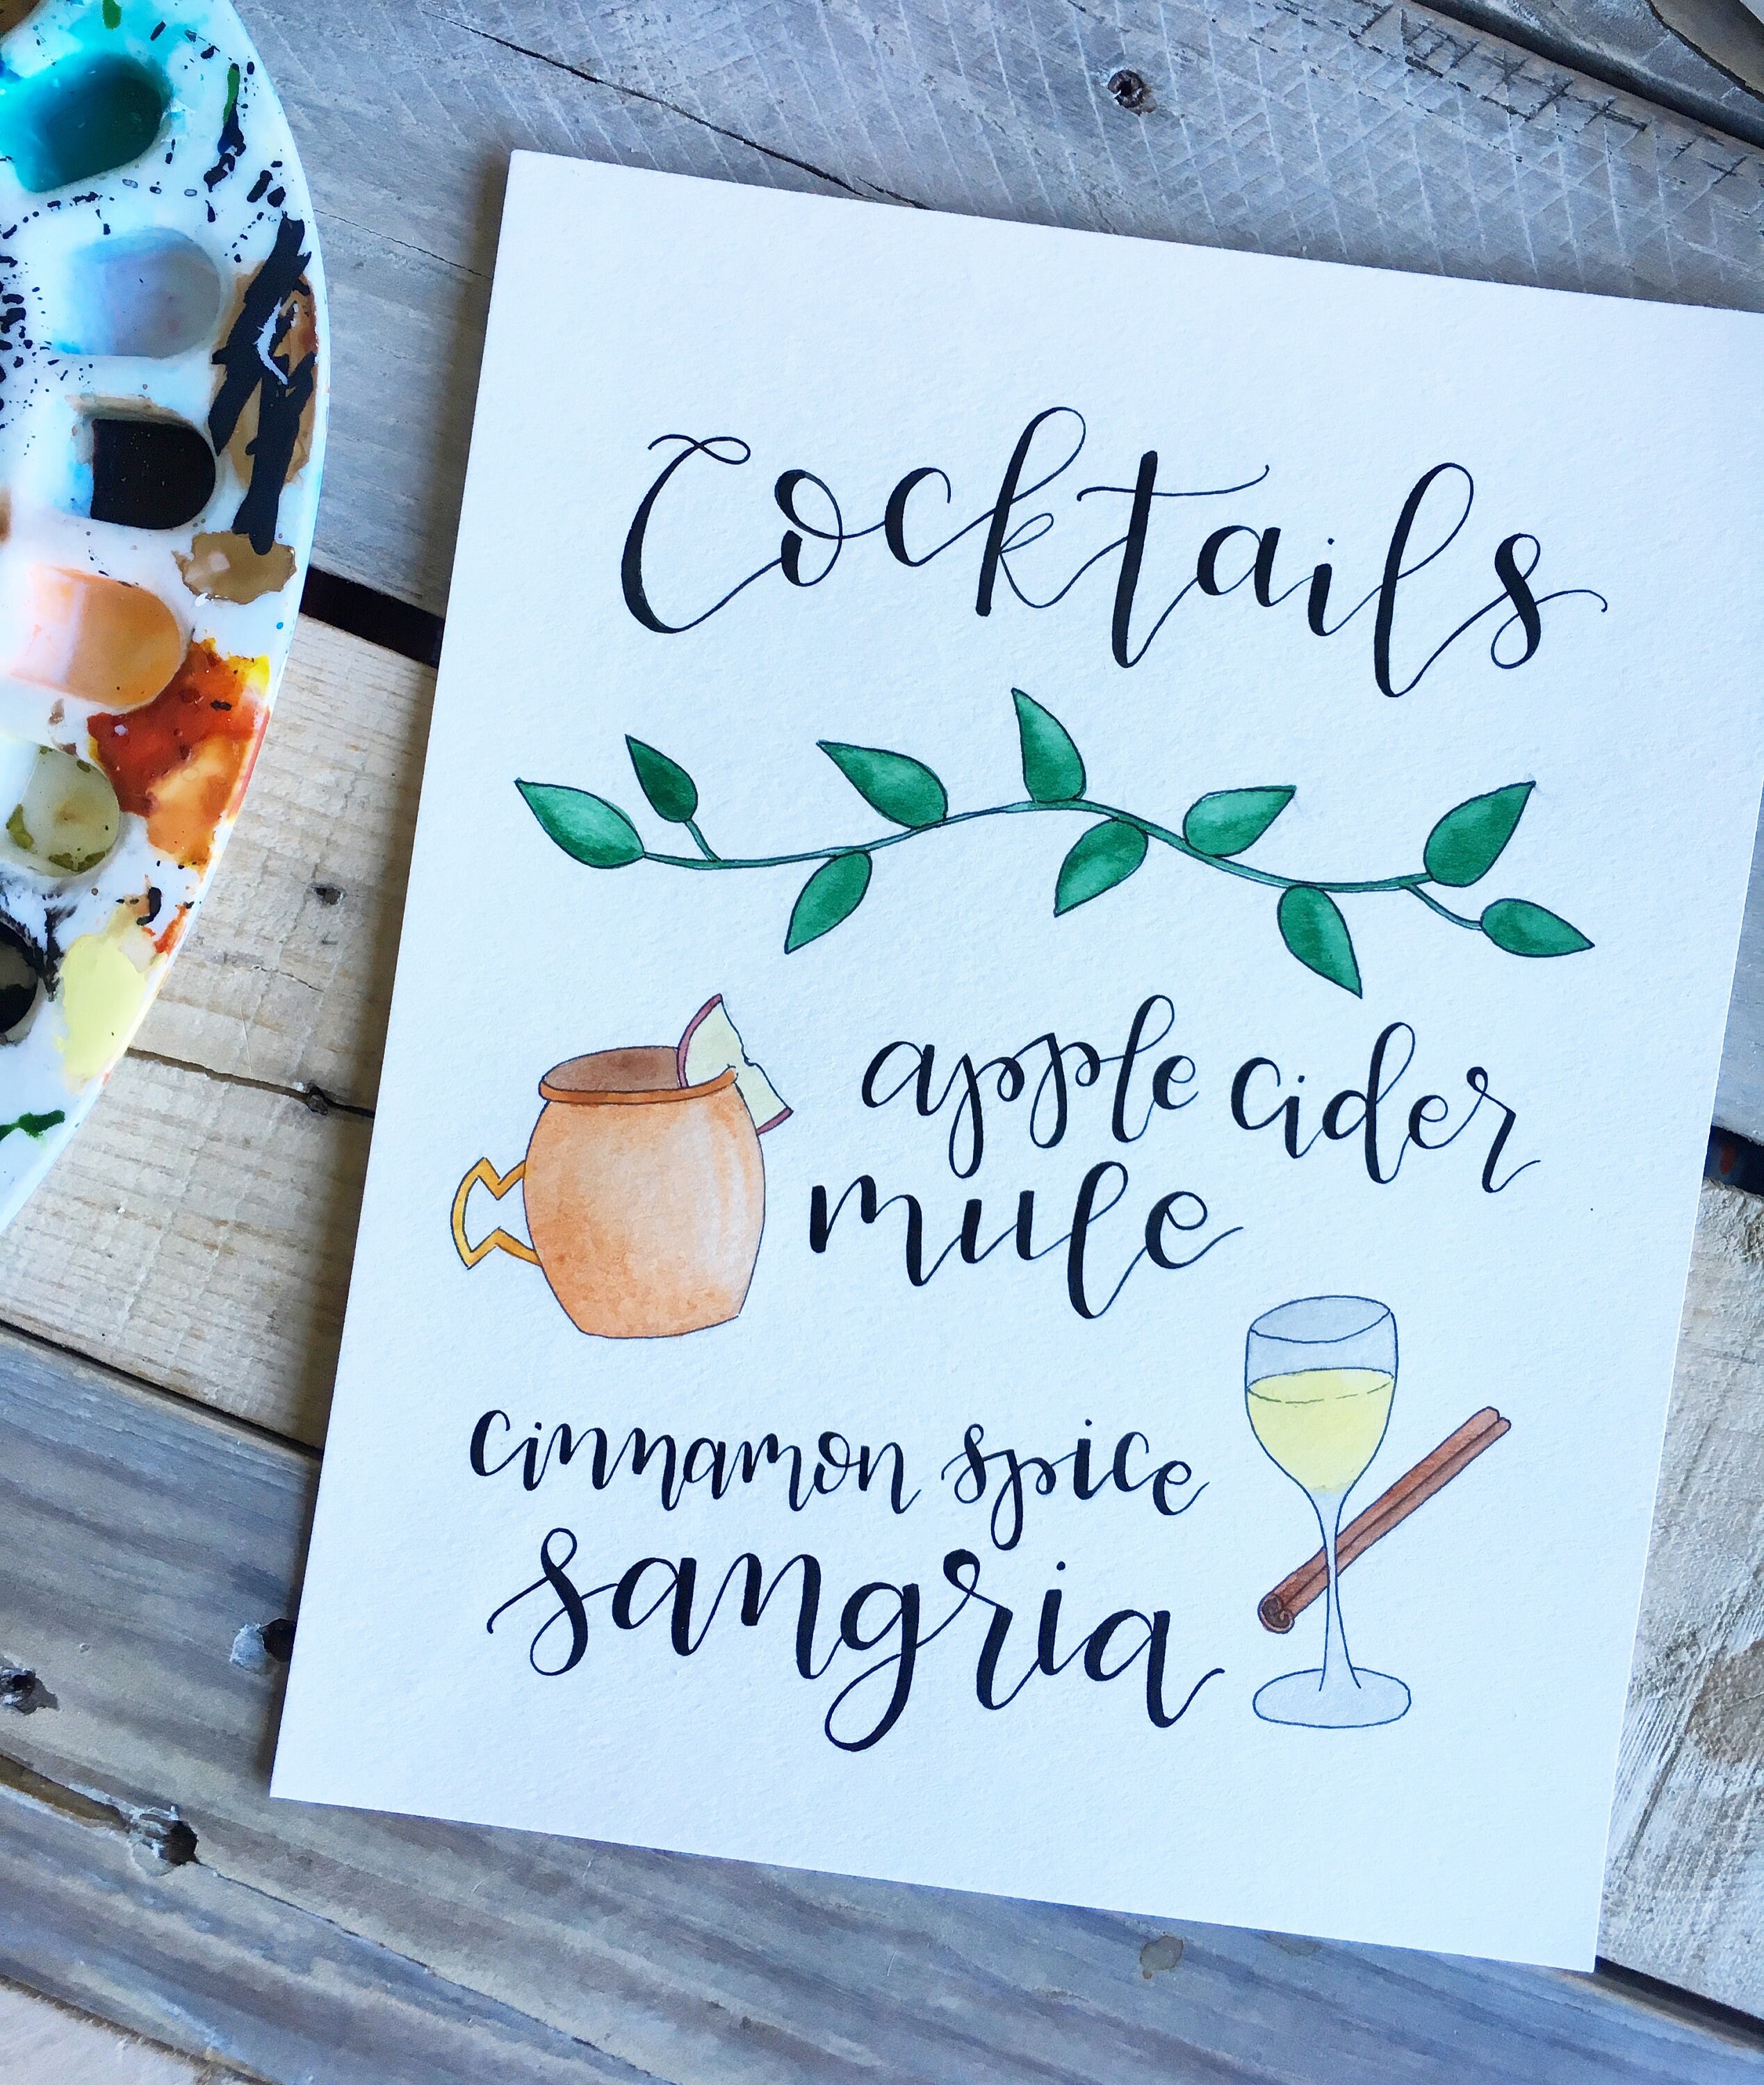 Cocktails
apple cider
mule
cinnamon spice
sangria